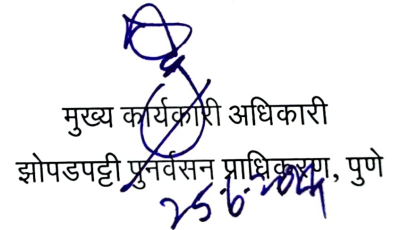 मुख्य कार्यकारी अधिकारी
झोपडपट्टी पुनर्वसन प्राधिकरण, पुणे
25.6.2024